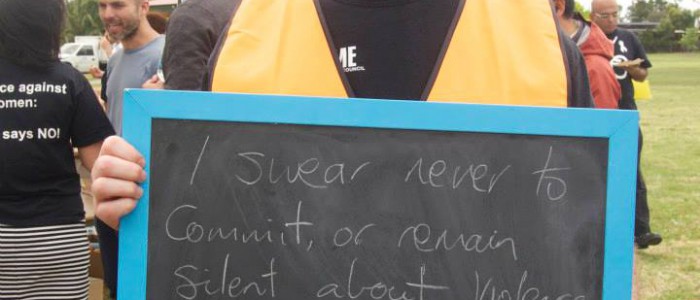 ce against
omen:
says NO!
ME
COUNCIL
I swear never to
Commit, or remain
silent about violence